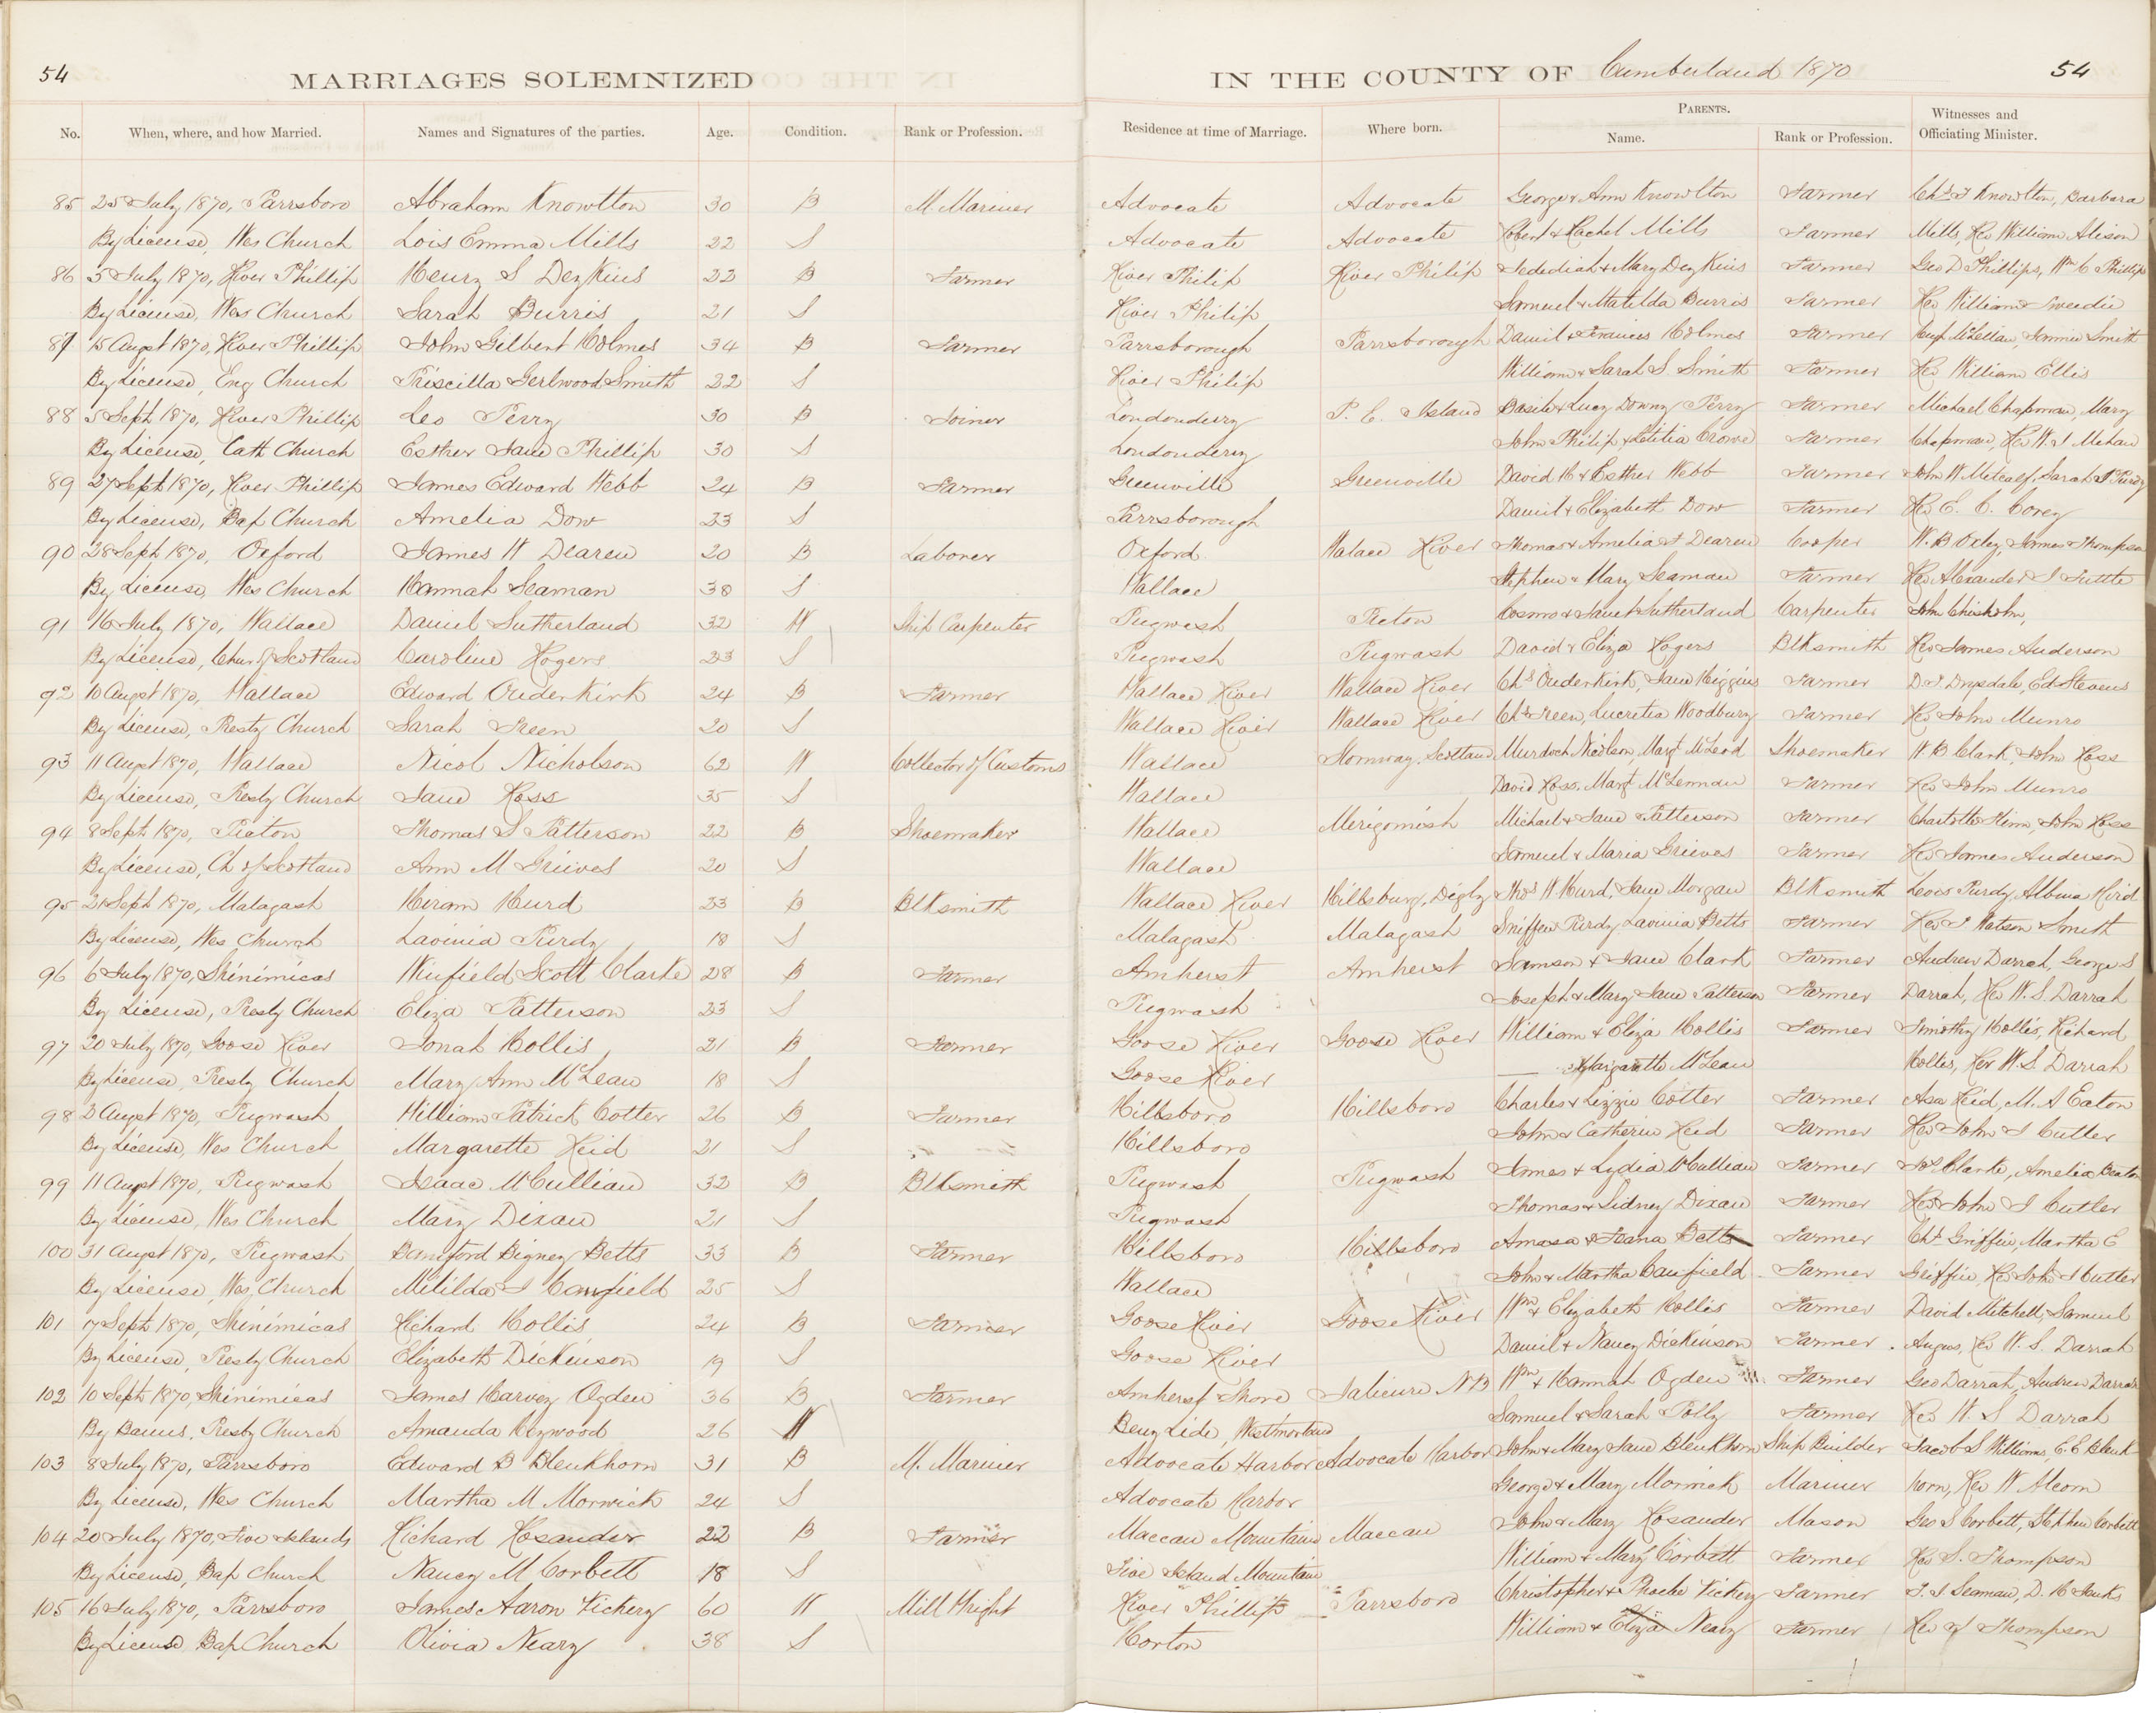 54
MARRIAGES SOLEMNIZED IN THE COUNTY OF Cumberland 1870
54
No. When, where, and how Married. Names and Signatures of the parties. Age. Condition. Rank or Profession. Residence at time of Marriage. Where born. PARENTS. Name. Rank or Profession. Witnesses and Officiating Minister.
85 25 July 1870, Parrsboro Abraham Knowlton 30 B M. Mariner Advocate Advocate George & Ann Knowlton Farmer Chs Knowlton, Barbara
By License, Wes Church Lois Emma Mills 22 S Advocate Advocate Robert & Rachel Mills Farmer Mills, Rev William Alison
86 5 July 1870, River Phillip Henry S 22 B Farmer River Philip River Philip Jedediah & Mary Farmer Geo D Phillips, Wm C Phillip
By License, Wes Church Sarah Burris 21 S River Philip Samuel & Matilda Burris Farmer Rev William
87 15 Augst 1870, River Phillip John Gilbert Holmes 34 B Farmer Parrsborough Parrsborough Daniel & Frances Holmes Farmer McLellan, Fannie Smith
By License, Eng Church Priscilla Smith 22 S River Philip William & Sarah S. Smith Farmer Rev William Ellis
88 5 Sept 1870, River Phillip Leo Perry 30 B Joiner Londonderry P. E. Island Basile & Lucy Perry Farmer Michael Chapman, Mary
By License, Cath Church Esther Jane Phillip 30 S Londonderry John Philip & Letitia Crowe Farmer Chapman, Rev W.
89 27 Sept 1870, River Phillip James Edward Webb 24 B Farmer Greenville Greenville David H & Esther Webb Farmer John W Metcalf, Sarah Purdy
By License, Bap Church Amelia Dow 23 S Parrsborough Daniel & Elizabeth Dow Farmer Rev E. C. Corey
90 28 Sept 1870, Oxford James W Dearen 20 B Laborer Oxford Walace River Thomas & Amelia Dearen Cooper W. B Oxley, James Thompson
By License, Wes Church Hannah Seaman 38 S Wallace Stephen & Mary Seaman Farmer Rev Alexander S Tuttle
91 16 July 1870, Wallace Daniel Sutherland 32 W Ship Carpenter Pugwash Picton Cosmo & Janet Sutherland Carpenter John Chisholm,
By License, Chur of Scotland Caroline Rogers 23 S Pugwash Pugwash David & Eliza Rogers Blksmith Rev James Anderson
92 10 Augst 1870, Wallace Edward Ouderkirk 24 B Farmer Wallace River Wallace River Chs Ouderkirk, Jane Higgins Farmer D. Drysdale, Ed Stevens
By License, Presty Church Sarah Treen 20 S Wallace River Wallace River Chs Treen, Lucretia Woodbury Farmer Rev John Munro
93 11 Augst 1870, Wallace Nicol Nicholson 62 W Collector of Customs Wallace Stornway, Scotland Murdoch Nicolson, Margt McLeod Shoemaker W B Clark, John Ross
By License, Presty Church Jane Ross 35 S Wallace David Ross, Margt McLennan Farmer Rev John Munro
94 8 Sept 1870, Picton Thomas S Patterson 22 B Shoemaker Wallace Merigomish Michael & Jane Patterson Farmer Charlotte, John Ross
By License, Ch of Scotland Ann M Grieves 20 S Wallace Samuel & Maria Grieves Farmer Rev James Anderson
95 21 Sept 1870, Malagash Hiram Hurd 23 B Blksmith Wallace River Hillsburg, Digby Thos W Hurd, Jane Morgan Blksmith Lewis Purdy, Albina Hird
By License, Wes Church Lavinia Purdy 18 S Malagash Malagash Sniffen Purdy, Lavinia Betts Farmer Rev J Watson Smith
96 6 July 1870, Shinimicas Winfield Scott Clarke 28 B Farmer Amherst Amherst Samson & Jane Clark Farmer Andrew Darrah, George S
By License, Presty Church Eliza Patterson 23 S Pugwash Joseph & Mary Jane Patterson Farmer Darrah, Rev W. S. Darrah
97 20 July 1870, Goose River Jonah Hollis 21 B Farmer Goose River Goose River William & Eliza Hollis Farmer Timothy Hollis, Richard
By License, Presty Church Mary Ann McLean 18 S Goose River Margarette McLean Hollis, Rev W. S. Darrah
98 2 Augst 1870, Pugwash William Patrick Cotter 26 B Farmer Hillsboro Hillsboro Charles & Lizzie Cotter Farmer Asa Reid, M. A Eaton
By License, Wes Church Margarette Reid 21 S Hillsboro John & Catherin Reid Farmer Rev John S Cutler
99 11 Augst 1870, Pugwash Isaac McCullian 32 B Blksmith Pugwash Pugwash James & Lydia McCullian Farmer Jos Clarke, Amelia
By License, Wes Church Mary Dixan 21 S Pugwash Thomas & Sidney Dixan Farmer Rev John S Cutler
100 31 Augst 1870, Pugwash Bamford Bigney Betts 33 B Farmer Hillsboro Hillsboro Amasa & Joana Betts Farmer Chs Griffin, Martha E
By License, Wes Church Mitilda J Canfield 25 S Wallace John & Martha Canfield Farmer Griffin, Rev John S Cutler
101 17 Sept 1870, Shinimicas Richard Hollis 24 B Farmer Goose River Goose River Wm & Elizabeth Hollis Farmer David Mitchell, Samuel
By License, Presty Church Elizabeth Dickinson 19 S Goose River Daniel & Nancy Dickinson Farmer Angus, Rev W. S. Darrah
102 10 Sept 1870, Shinimicas James Harvey Ogden 36 B Farmer Amherst Shore NB Wm & Hannah Ogden Farmer Geo Darrah, Andrew Darrah
By Banns, Presty Church Amanda 26 W Westmorland Samuel & Sarah Polly Farmer Rev W. S Darrah
103 8 July 1870, Parrsboro Edward B Blenkhorn 31 B M. Mariner Advocate Harbor Advocate Harbor John & Mary Jane Blenkhorn Ship Builder Jacob S Williams, E. E Blenk-
By License, Wes Church Martha M Morwick 24 S Advocate Harbor George & Mary Morwick Mariner horn, Rev W Alcorn
104 20 July 1870, Five Islands Richard Rosander 22 B Farmer Maccan Mountain Maccan John & Mary Rosander Mason Geo S Corbett, Stephen Corbett
By License, Bap Church Nancy M Corbett 18 S Five Island Mountain William & Mary Corbett Farmer Rev S. Thompson
105 16 July 1870, Parrsboro James Aaron Vickery 60 W Mill Wright River Phillip Parrsboro Christopher & Phoebe Vickery Farmer Seaman, D. H
By License Bap Church Olivia Neary 38 S Horton William & Eliza Neary Farmer Rev Thompson